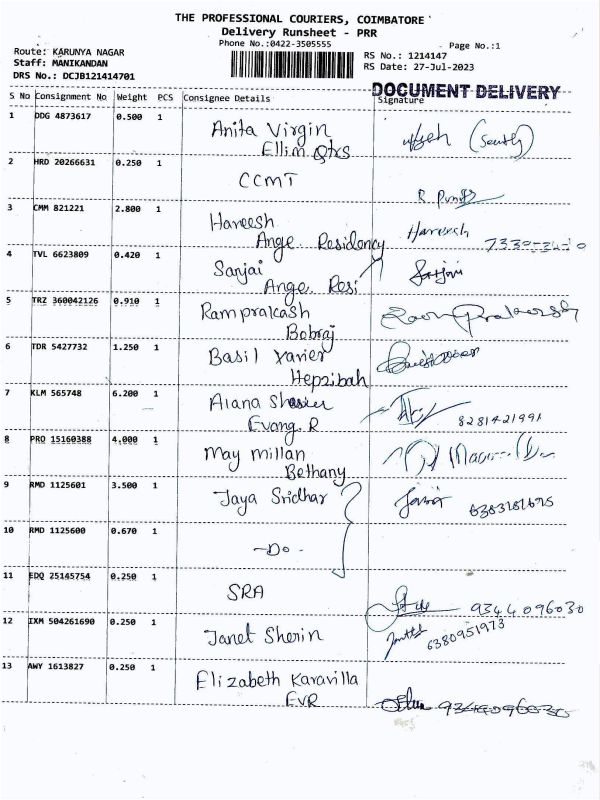 THE PROFESSIONAL COURIERS, COIMBATORE
Delivery Runsheet - PRR
Phone No.:0422-3505555
Page No.:1
Route: KARUNYA NAGAR
Staff: MANIKANDAN
DRS No.: DCJB121414701
RS No.: 1214147
RS Date: 27-Jul-2023
DOCUMENT DELIVERY
S No Consignment No Weight PCS Consignee Details Signature
1 DDG 4873617 0.500 1
Anita Virgin
Ellim Qtrs
2 HRD 20266631 0.250 1
CCMT
3 CMM 821221 2.800 1
Hareesh Hareesh
Ange Residency
4 TVL 6623809 0.420 1
Sanjai
Ange Resi
5 TRZ 360042126 0.910 1
Ramprakash
Bobraj
6 TDR 5427732 1.250 1
Basil Xavier
Hepzibah
7 KLM 565748 6.200 1
Alana
8281421991
Evang. R
8 PRO 15160388 4.000 1
May millan
Bethany
9 RMD 1125601 3.500 1
Jaya Sridhar
6383181695
10 RMD 1125600 0.670 1
-Do-
11 EDQ 25145754 0.250 1
SRA
9344096030
12 IXM 504261690 0.250 1
Janet Sherin 6380951973
13 AWY 1613827 0.250 1
Elizabeth Karavilla
EVR 9344096030